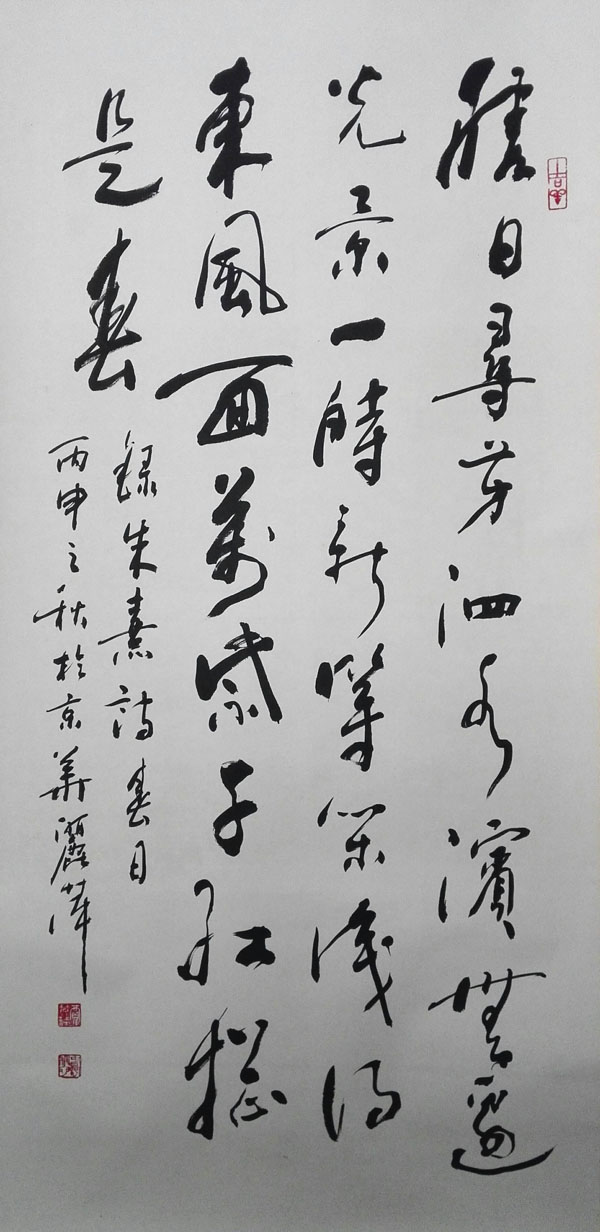 勝日尋芳泗水濱無邊
光景一時新等閒識得
東風面萬紫千紅總
是春
錄朱熹詩春日
丙申之秋於京華麗